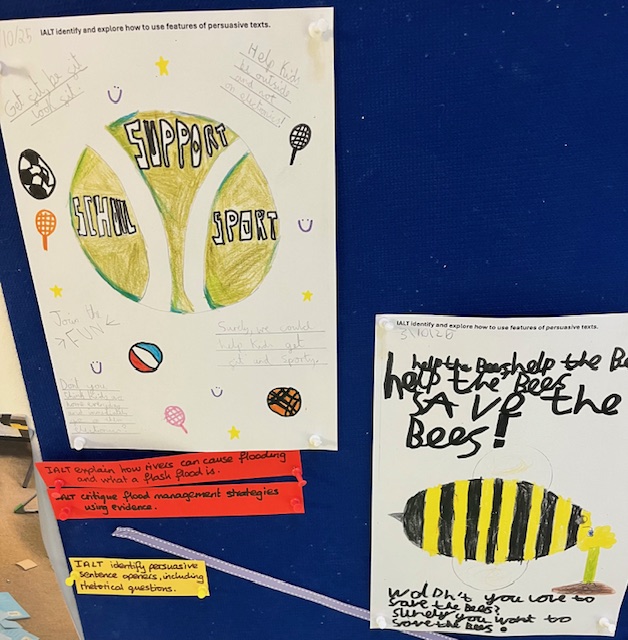 /10/25
IALT identify and explore how to use features of persuasive texts.
Get fit, be fit
look fit.
Help Kids
be outside
and not
on electonics!
SUPPORT
SCHOOL
SPORT
Join the
FUN
Surely, we could
help kids get
fit and sporty
Don't you
think kids
IALT explain how rivers can cause flooding
and what a flash flood is.
IALT critique flood management strategies
using evidence.
IALT identify persuasive
sentence openers, including
rhetorical questions.
IALT identify and explore how to use features of persuasive texts.
3/10/25
help the Bees help the Be
help the Bees
SAVE the
Bees!
Woldn't you love to
save the Bees?
Surely you want to
save the Bees!